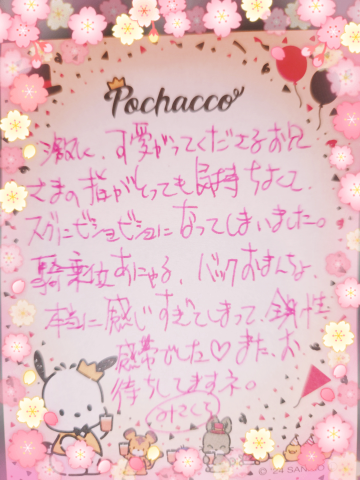 Pochacco
激しく、可愛がってくださるお兄
さまの指がとっても気持ちよくて、
スグにビショビショになってしまいました。
騎乗位 おにゃる、バックおまんちょ、
本当に感じすぎてしまって、全身性
感帯でした♡また、お
待ちしてますネ。
みさくら
© '24 SAN